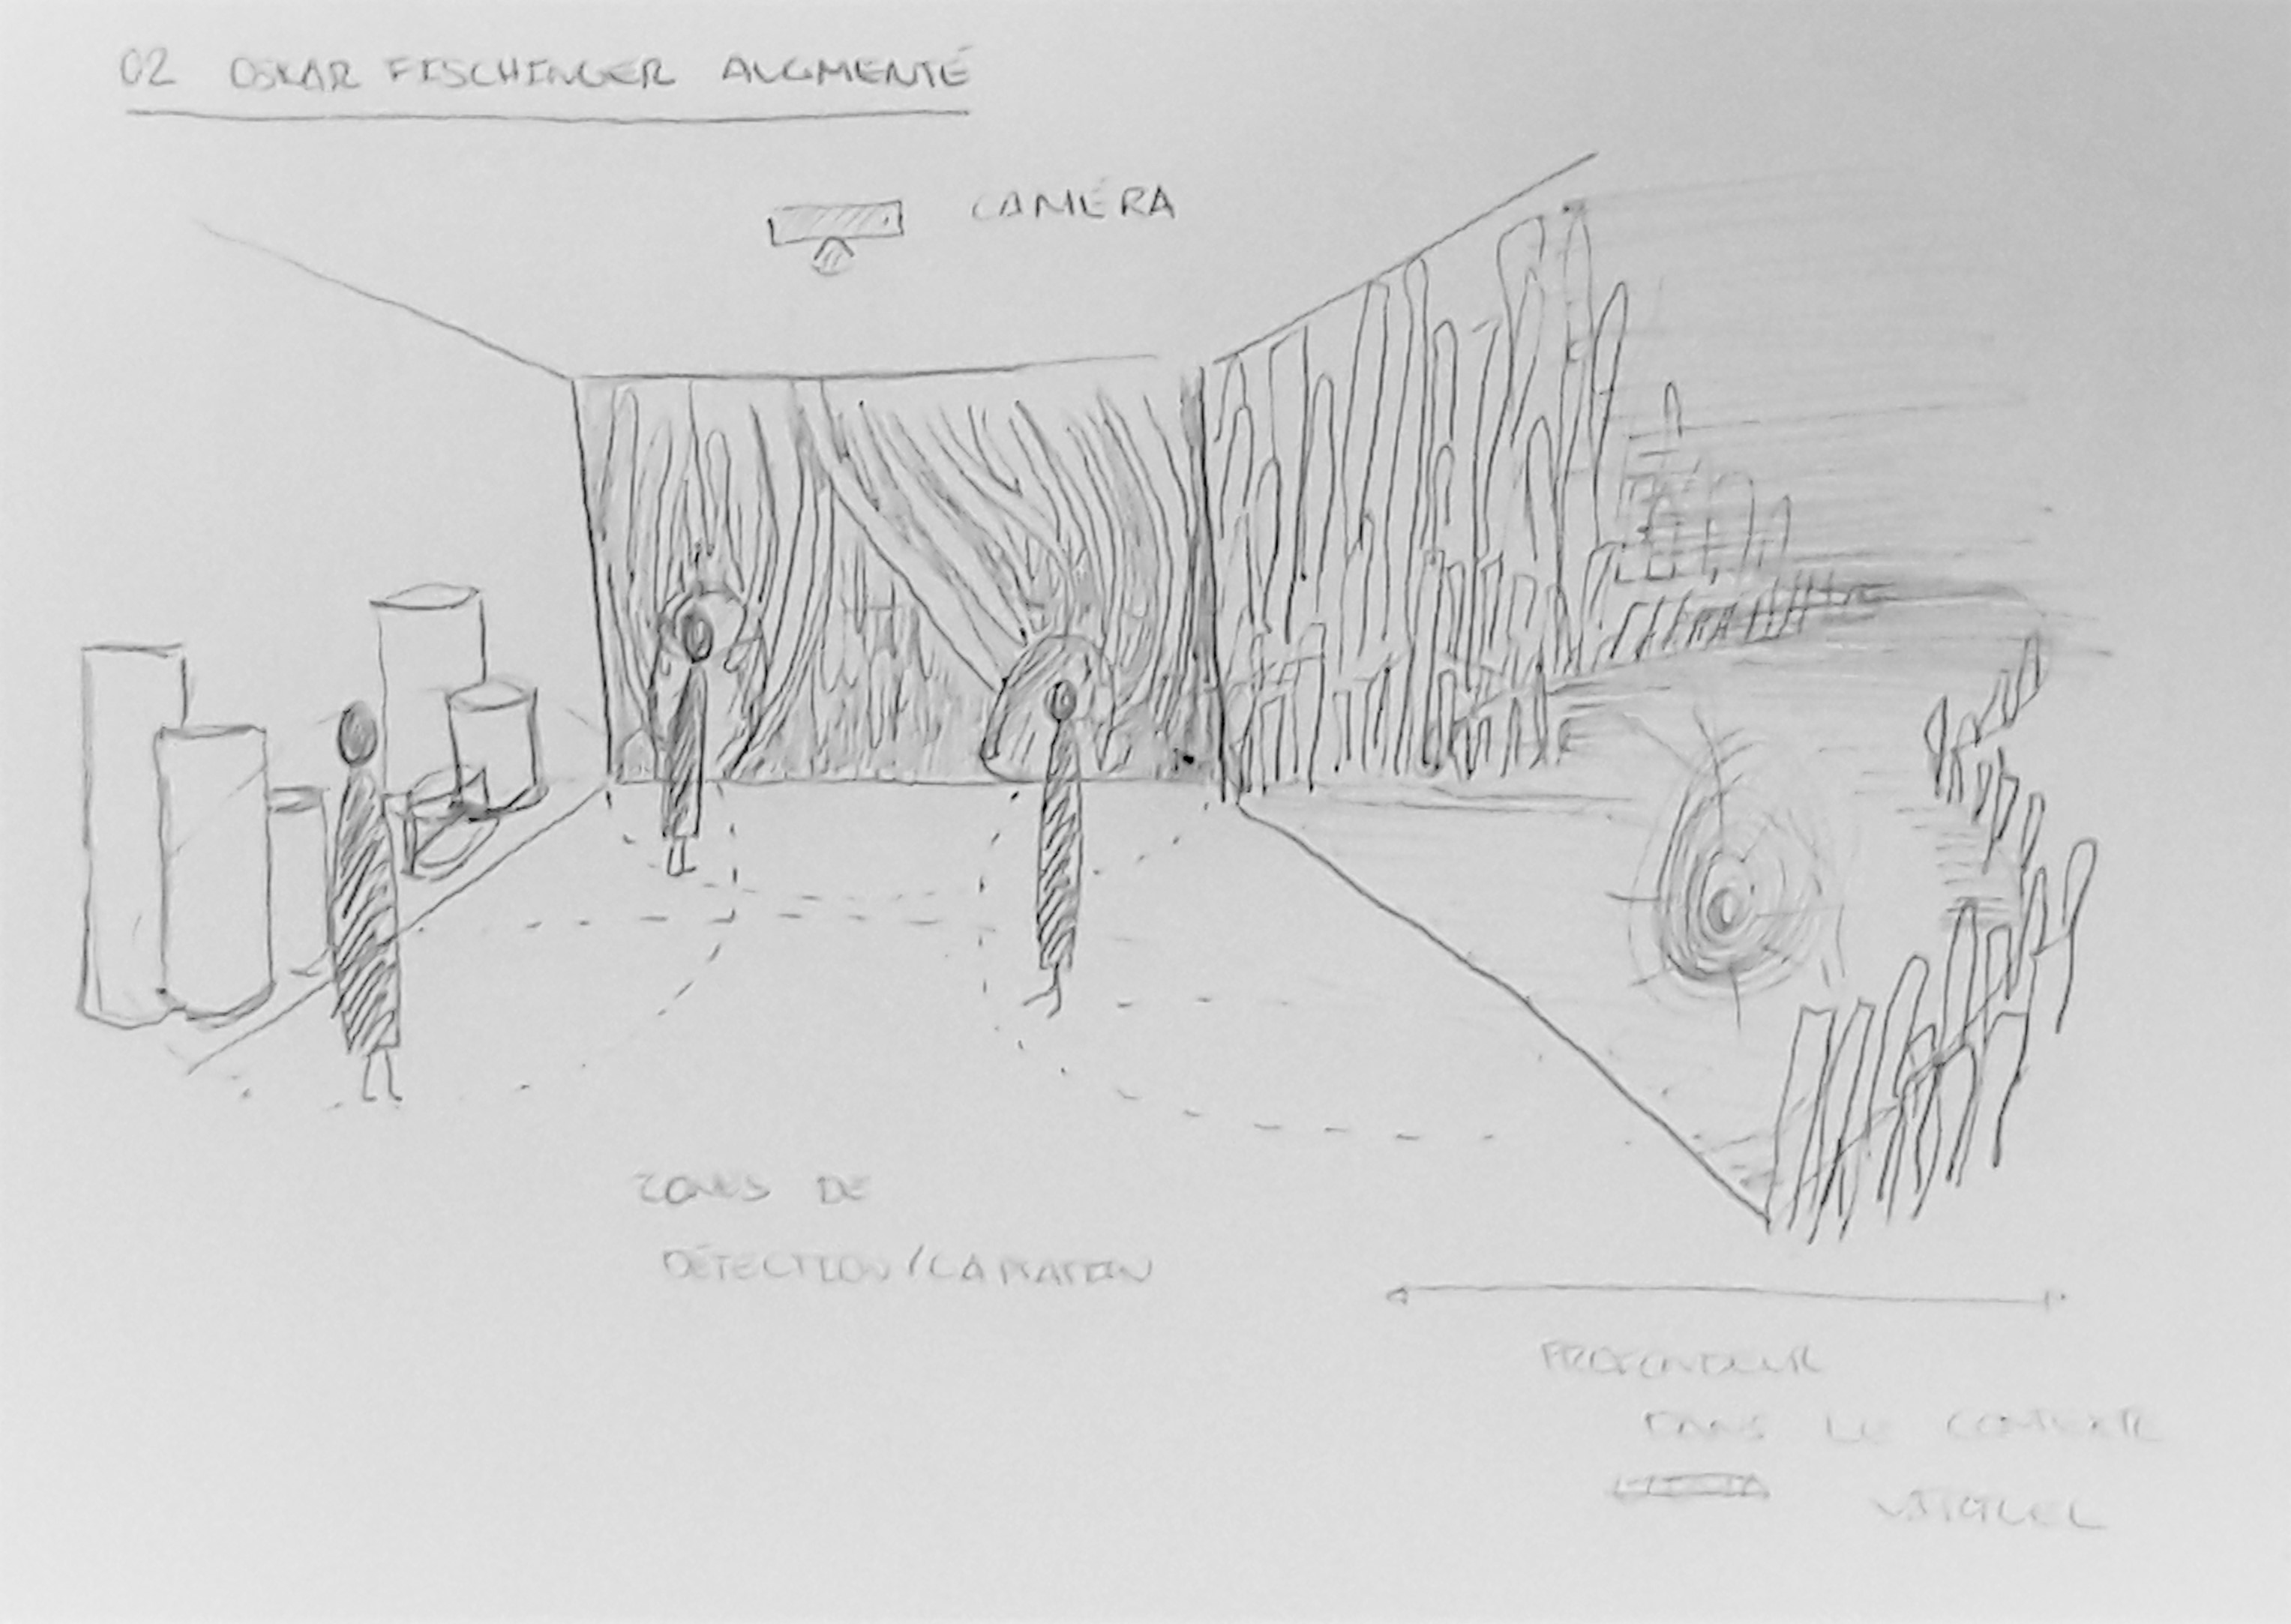 02 OSKAR FISCHINGER AUGMENTÉ
CAMÉRA
ZONES DE
DÉTECTION/CAPTATION
PROFONDEUR
DANS LE CONTEXTE
VISUEL